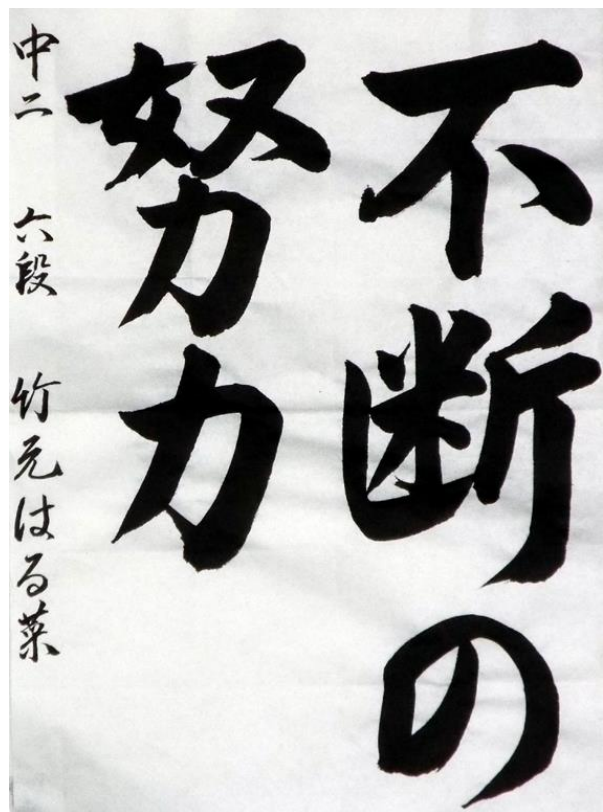 不断の
努力
中二 六段 竹元はる菜